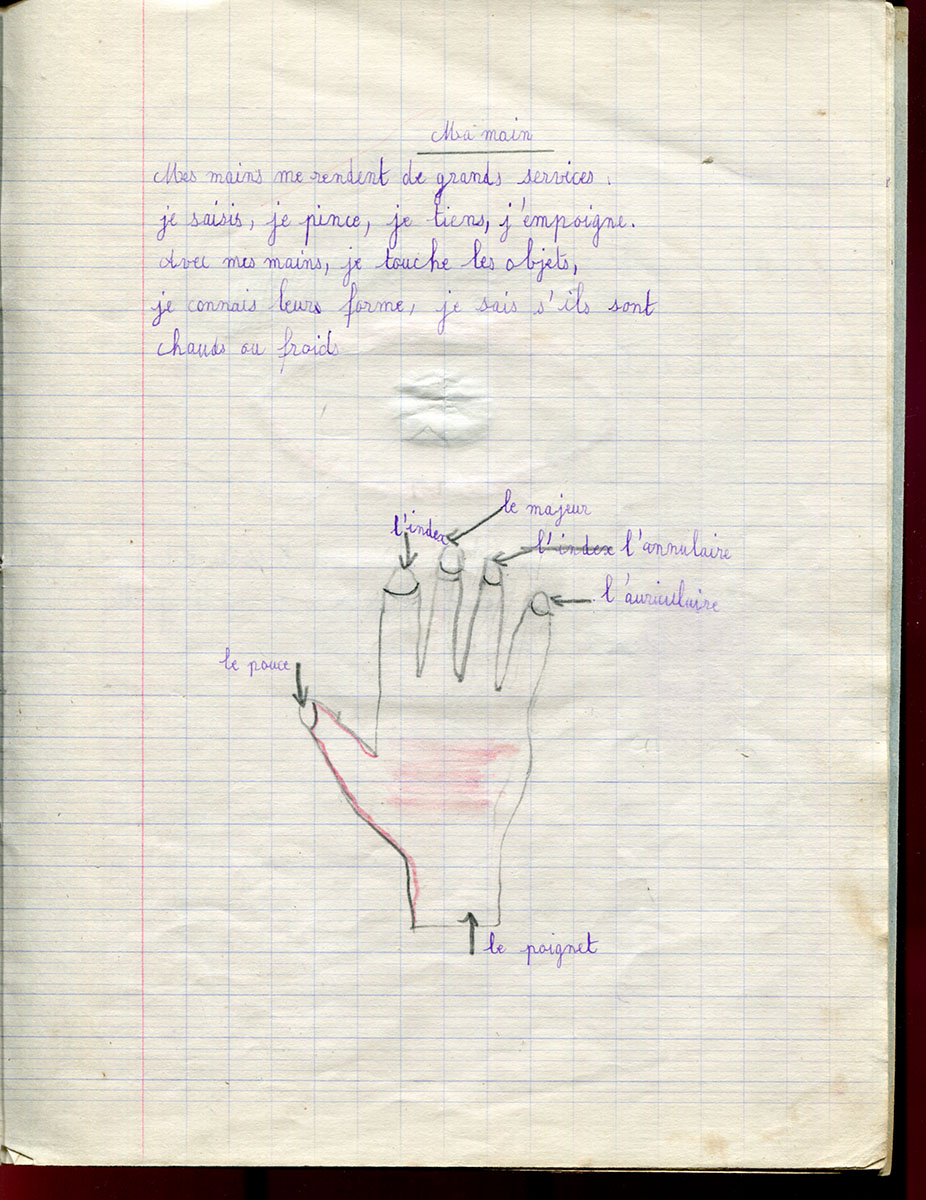 Ma main
Mes mains me rendent de grands services.
je saisis, je pince, je tiens, j'empoigne.
Avec mes mains, je touche les objets,
je connais leurs forme, je sais s'ils sont
chauds ou froids
le majeur
l'index
l'index l'annulaire
l'auriculaire
le pouce
le poignet